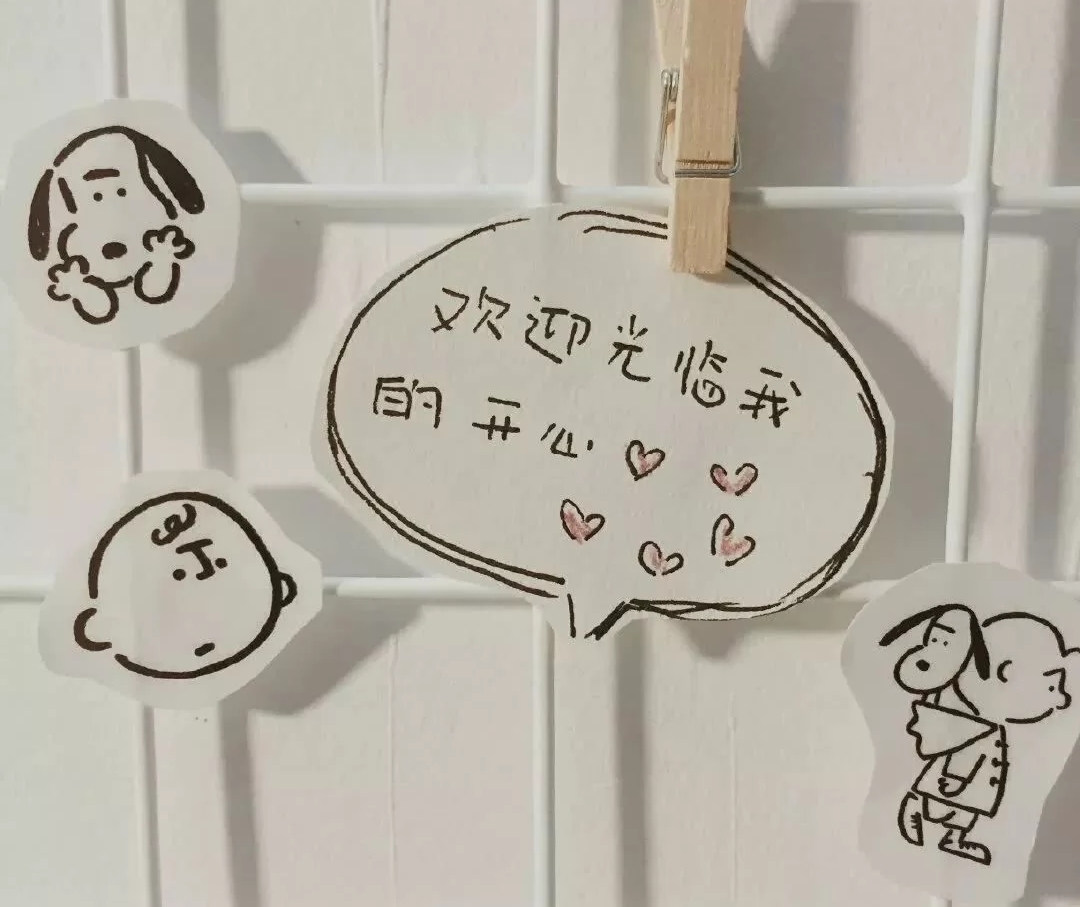 欢迎光临我
的开心